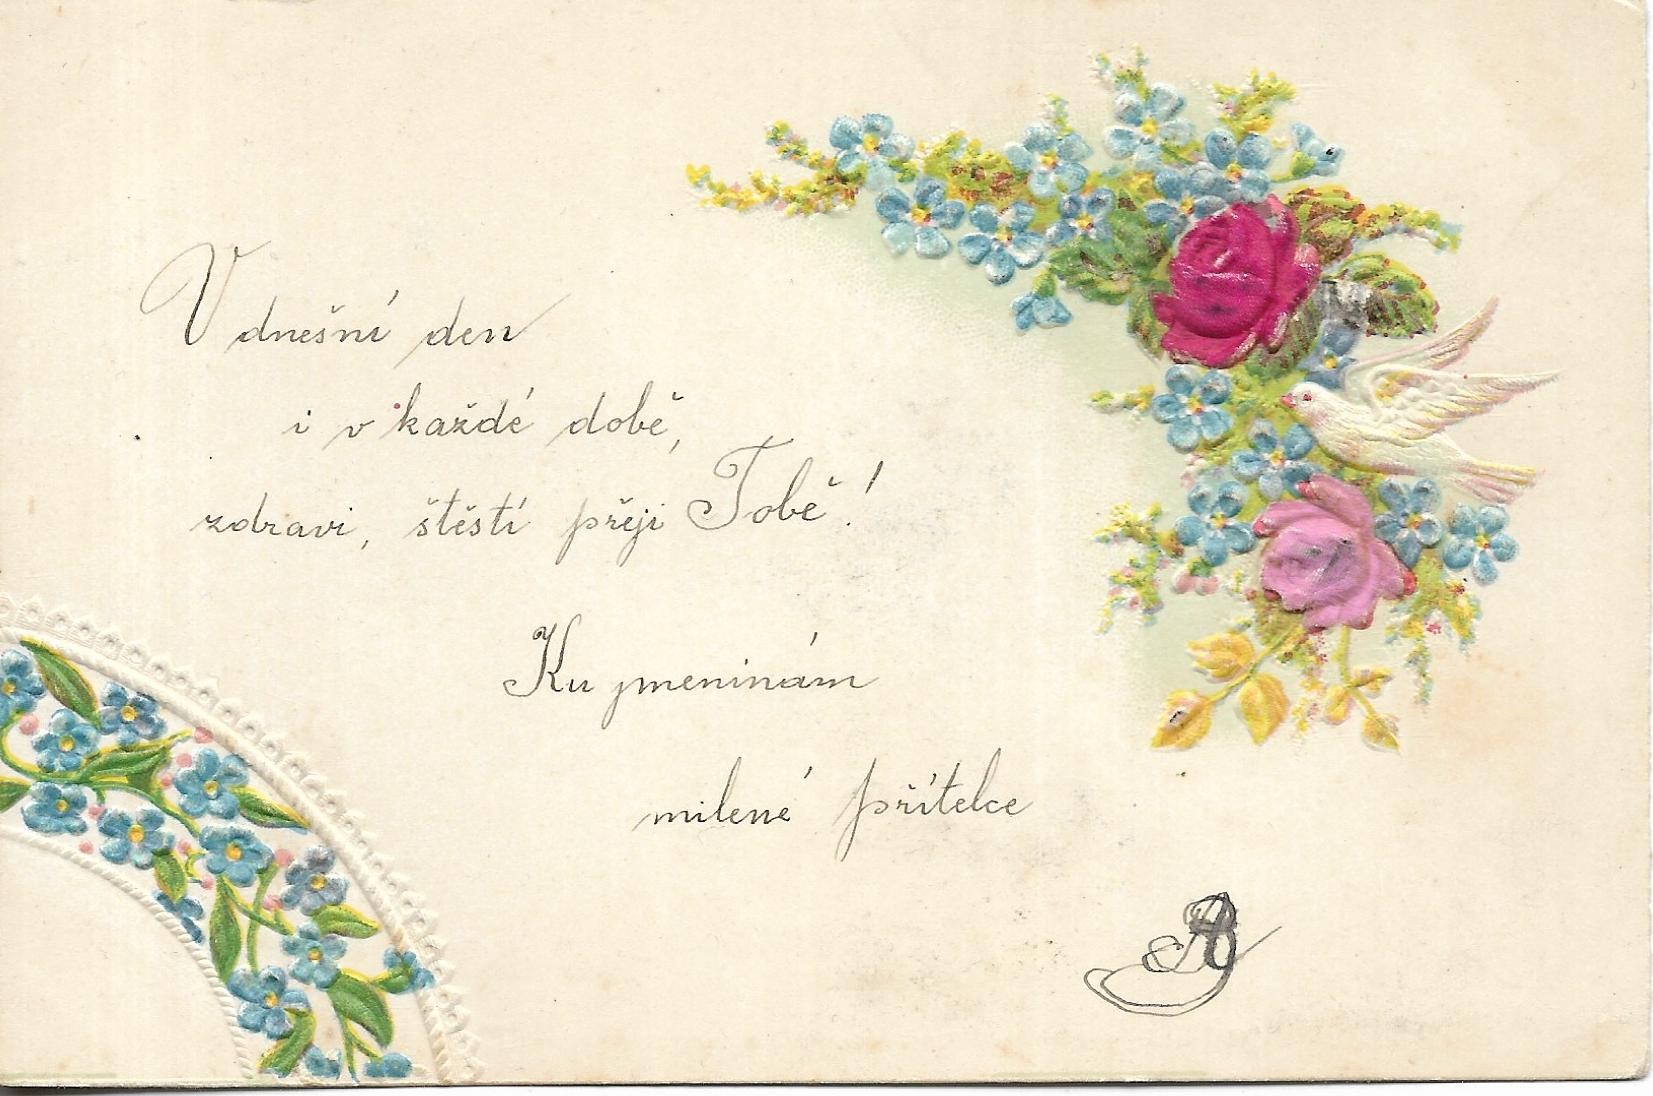 V dnešní den
i v každé době,
zdravi, štěstí přeji Tobě!
Ku jmeninám
milené přítelce